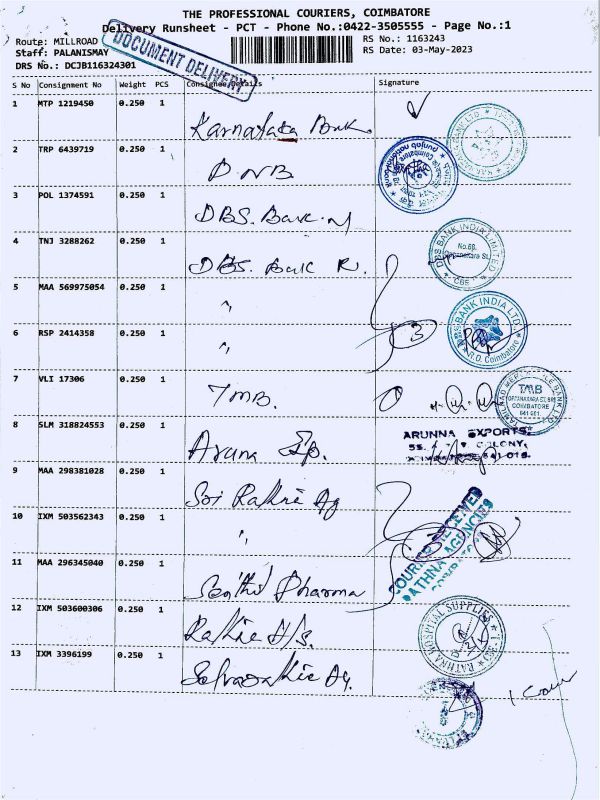 THE PROFESSIONAL COURIERS, COIMBATORE
Delivery Runsheet - PCT - Phone No.:0422-3505555 - Page No.:1
Route: MILLROAD
RS No.: 1163243
Staff: PALANISMAY
RS Date: 03-May-2023
DRS No.: DCJB116324301
DOCUMENT DELIVERY
S No Consignment No Weight PCS Consignee Details Signature
1 MTP 1219450 0.250 1 Karnataka Bank
2 TRP 6439719 0.250 1 PNB
punjab national bank
3 POL 1374591 0.250 1 DBS. Bank
4 TNJ 3288262 0.250 1 DBS. Bank R.
DBS BANK INDIA LIMITED
No.68,
CBE
5 MAA 569975054 0.250 1 "
BANK INDIA LTD.
R.O. Coimbatore
3
6 RSP 2414358 0.250 1 "
7 VLI 17306 0.250 1 TMB.
TMB
COIMBATORE
641 001
8 SLM 318824553 0.250 1 Aruna Exp.
ARUNNA EXPORTS
COLONY,
9 MAA 298381028 0.250 1 Sri Rathna Ag
10 IXM 503562343 0.250 1 "
COURIER RECEIVED
RATHNA AGENCIES
11 MAA 296345040 0.250 1 Senthil Pharma
12 IXM 503600306 0.250 1 Rathna H/s.
RATHNA HOSPITAL SUPPLIES
13 IXM 3396199 0.250 1